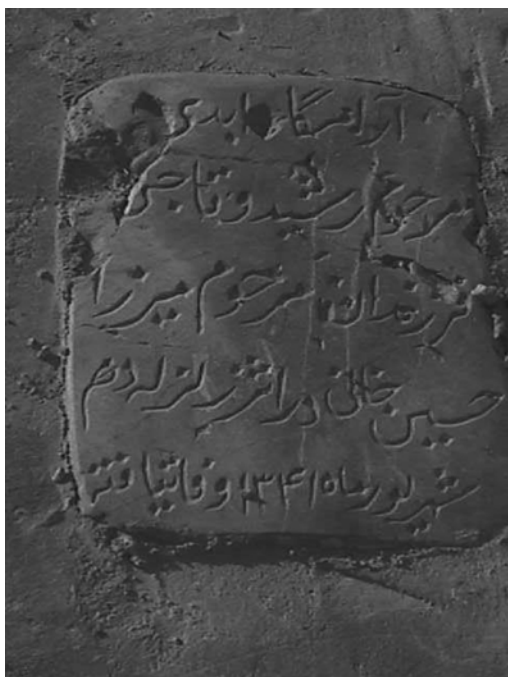 آرامگاه ابدی
مرحوم رشید و تاجی
فرزندان مرحوم میرزا
حسین خانی در اثر زلزله دهم
شهریور ماه ۱۳۴۱ وفات یافتند